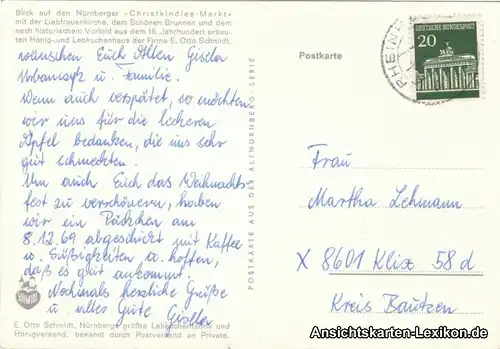 Blick auf den Nürnberger -Christkindles-Markt-
mit der Liebfrauenkirche, dem Schönen Brunnen und dem
nach historischem Vorbild aus dem 16. Jahrhundert erbau-
ten Honig- und Lebkuchenhaus der Firma E. Otto Schmidt.
wünschen Euch Allen Gisela
u. Familie.
Wenn auch verspätet, so möchten
wir uns für die leckeren
Äpfel bedanken, die uns sehr
gut schmeckten.
Um auch Euch das Weihnachts
fest zu verschönern, haben
wir ein Päckchen am
8.12.69 abgeschickt mit Kaffee
u. Süßigkeiten u. hoffen,
daß es gut ankommt.
Nochmals herzliche Grüße
u. alles Gute Gisela
SCHMIDT
E. Otto Schmidt, Nürnbergs größte Lebkuchenfabrik und
Honigversand, bekannt durch Postversand an Private.
POSTKARTE AUS DER ALTNÜRNBERG-SERIE
Postkarte
RHEIN
DEUTSCHE BUNDESPOST
20
Frau
Martha Lehmann
X 8601 Klix 58 d
Kreis Bautzen
Ansichtskarten-Lexikon.de